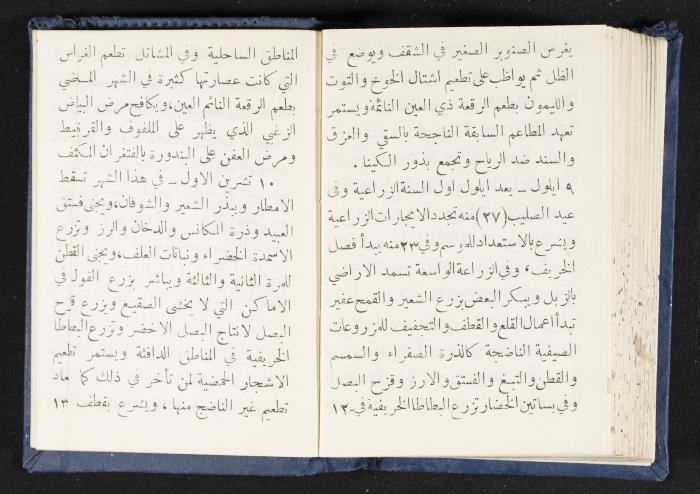 يغرس الصنوبر الصغير في الشقف ويوضع في
الظل ثم يواظب على تطعيم اشتال الخوخ والتوت
والليمون بطعم الرقعة ذي العين النائمة ويستمر
تعهد المطاعيم السابقة الناجحة بالسقي والعزق
والسند ضد الرياح وتجمع بذور الكينا .
٩ ايلول – يعد ايلول اول السنة الزراعية وفي
عيد الصليب (٢٧) منه تجدد الايجارات الزراعية
ويشرع بالاستعداد للموسم وفي ٢٣ منه يبدأ فصل
الخريف، وفي الزراعة الواسعة تسمد الاراضي
بالزبل ويبكر البعض بزرع الشعير والقمح عفير
تبدأ اعمال القلع والقطف والتجفيف للمزروعات
الصيفية الناضجة كالذرة الصفراء والسمسم
والقطن والتبغ والفستق والارز وقزح البصل
وفي بساتين الخضار تزرع البطاطا الخريفية في ١٢
المناطق الساحلية وفي المشاتل تطعم الغراس
التي كانت عصارتها كثيرة في الشهر الماضي
بطعم الرقعة النائم العين، ويكافح مرض البياض
الزغبي الذي يظهر على الملفوف والقرنبيط
ومرض العفن على البندورة بالفتغران المكثف
١٠ تشرين الاول – في هذا الشهر تسقط
الامطار ويبذر الشعير والشوفان، ويجنى فستق
العبيد وذرة المكانس والدخان والرز وتزرع
الاسمدة الخضراء ونباتات العلف، ويجنى القطن
للمرة الثانية والثالثة ويباشر بزرع الفول في
الاماكن التي لا يخشى الصقيع وبزرع قزح
البصل لانتاج البصل الاخضر وتزرع البطاطا
الخريفية في المناطق الدافئة ويستمر تطعيم
الاشجار الحمضية لمن تأخر في ذلك كما يعاد
تطعيم غير الناضج منها ، ويشرع بقطف ١٣